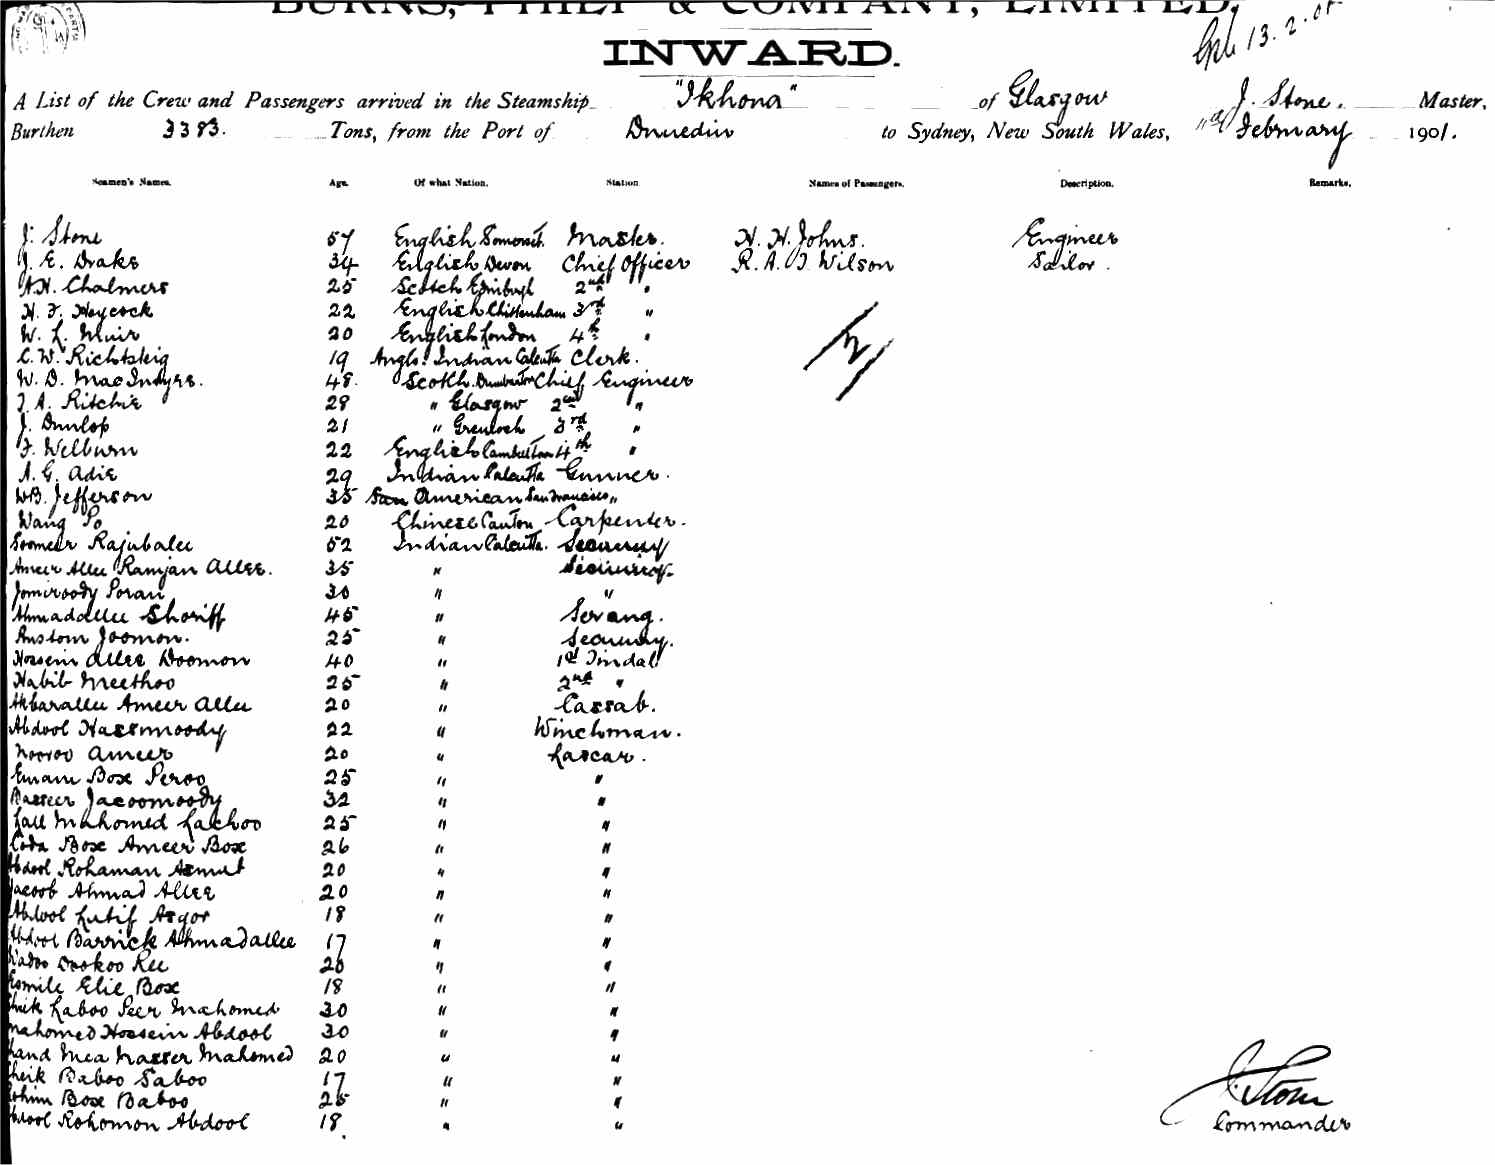 BURNS, PHILP & COMPANY, LIMITED,
13.2.01
INWARD.
A List of the Crew and Passengers arrived in the Steamship "Ikhona" of Glasgow J. Stone. Master,
Burthen 3383. Tons, from the Port of Dunedin to Sydney, New South Wales, 11th February 1901.
Seamen's Names. Age. Of what Nation. Station. Names of Passengers. Description. Remarks.
J. Stone 57 English Somerset. Master. H. H. Johns. Engineer
J. E. Drake 34 English Devon Chief Officer R. A. J. Wilson Sailor.
A. H. Chalmers 25 Scotch Edinburgh 2nd "
H. J. Haycock 22 English Chittenham 3rd "
W. L. Muir 20 English London 4th "
C. W. Richtsteig 19 Anglo. Indian Calcutta Clerk.
W. D. MacIndyre. 48. Scotch. Dumbarton Chief Engineer
J. A. Ritchie 29 " Glasgow 2nd "
J. Dunlop 21 " Greenock 3rd "
F. Welburn 22 English 4th "
A. G. Adie 29 Indian Calcutta Gunner.
W. B. Jefferson 35 American San Francisco "
Wang Po 20 Chinese Canton Carpenter.
Soomeer Rajubalee 52 Indian Calcutta. Secunny
Ameer Allee Ramjan Allee. 35 " Secunny.
Jomiroody Poran 30 " "
Ahmadallee Shoriff 45 " Serang.
Rustom Joomon. 25 " Secunny.
Hossein Allee Doomon 40 " 1st Tindal
Habib Meethoo 25 " 2nd "
Akbarallee Ameer Allee 20 " Cassab.
Abdool Hassmoody 22 " Winchman.
Nooroo Ameer 20 " Lascar.
Emam Box Peroo 25 " "
Basseer Jacoomoody 32 " "
Lall Mahomed Lachoo 25 " "
Coda Box Ameer Box 26 " "
Abdool Rohaman Asmut 20 " "
Jacoob Ahmad Allee 20 " "
Abdool Lutif Asgor 18 " "
Abdool Barrick Ahmadallee 17 " "
Dookoo Ree " "
Esmile Elie Box 18 " "
Sheik Laboo Peer Mahomed 30 " "
Mahomed Hossein Abdool 30 " "
Chand Mea Nasser Mahomed 20 " "
Sheik Baboo Saboo 17 " "
Rohim Box Baboo 25 " "
Abdool Rohomon Abdool 18. " "
J. Stone
Commander